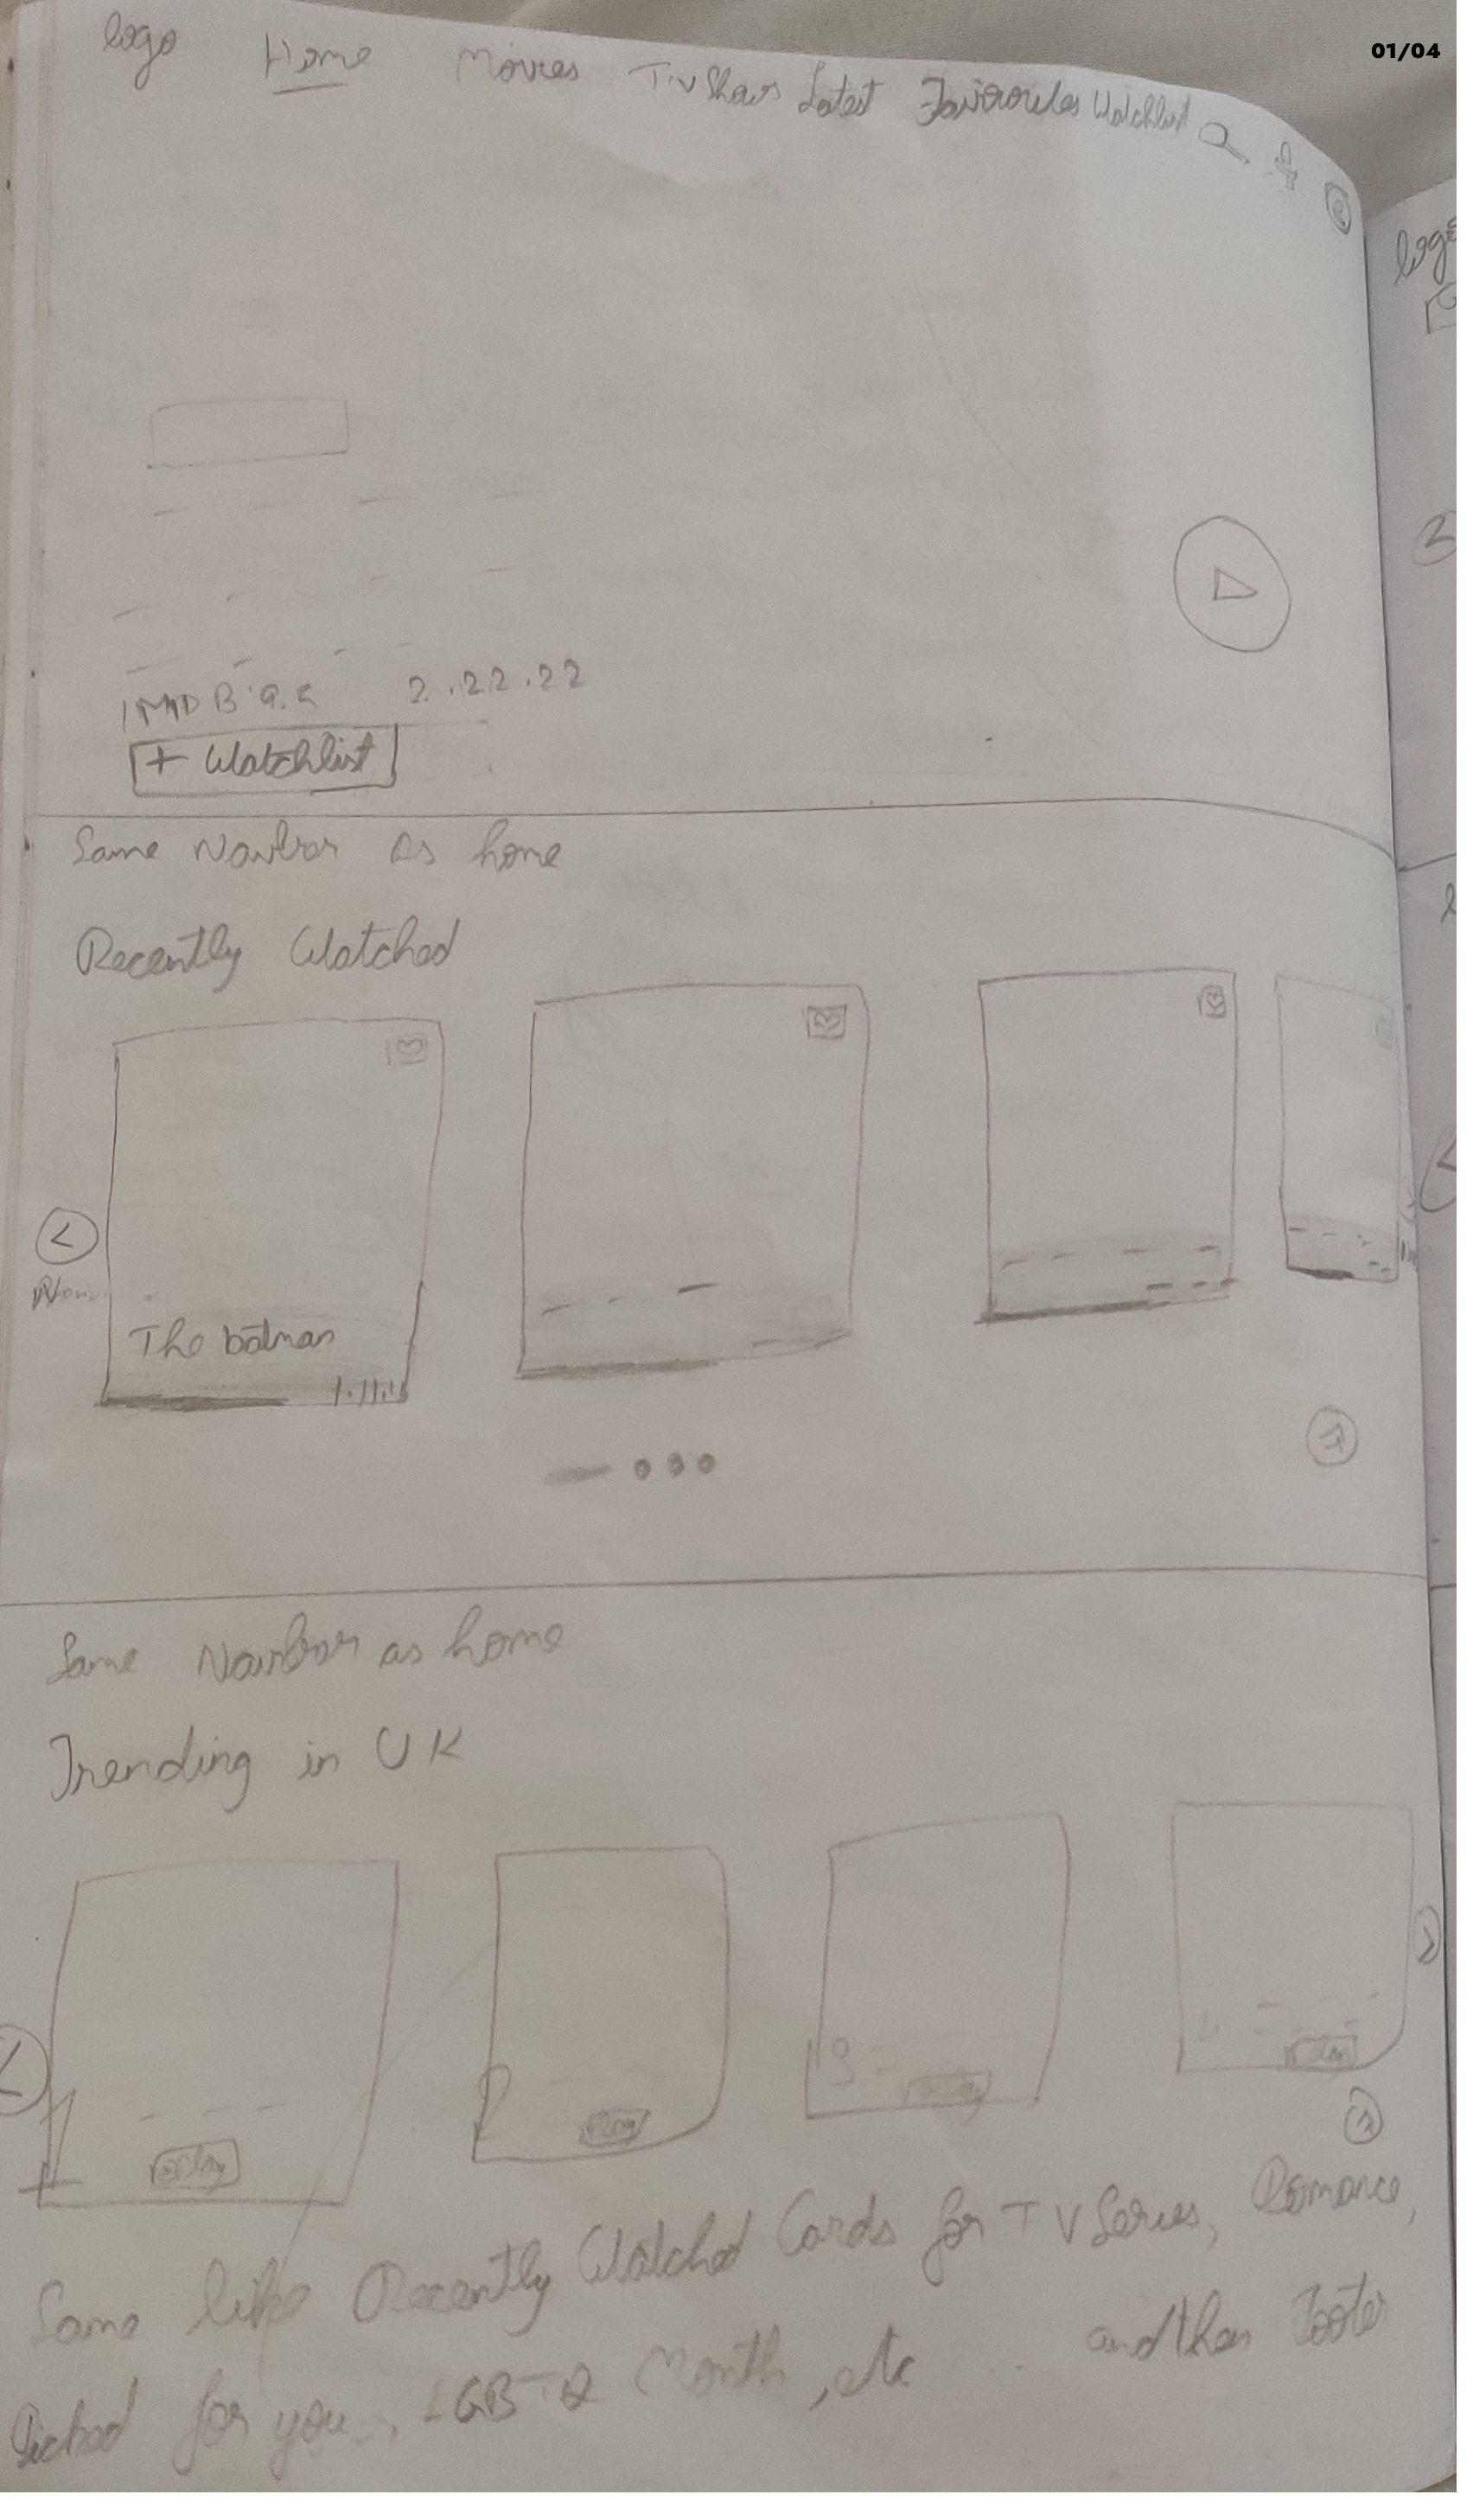 01/04
logo Home Movies TV Shows Latest Favourites Watchlist
logo
IMDB 9.2 2.22.22
+ Watchlist
Same Navbar as home
Recently Watched
The batman
Same Navbar as home
Trending in UK
1 2 3
Play Play Play Play
Same like Recently Watched Cards for TV Series, Romance,
Picked for you, LGBTQ Month, etc ... and then Footer